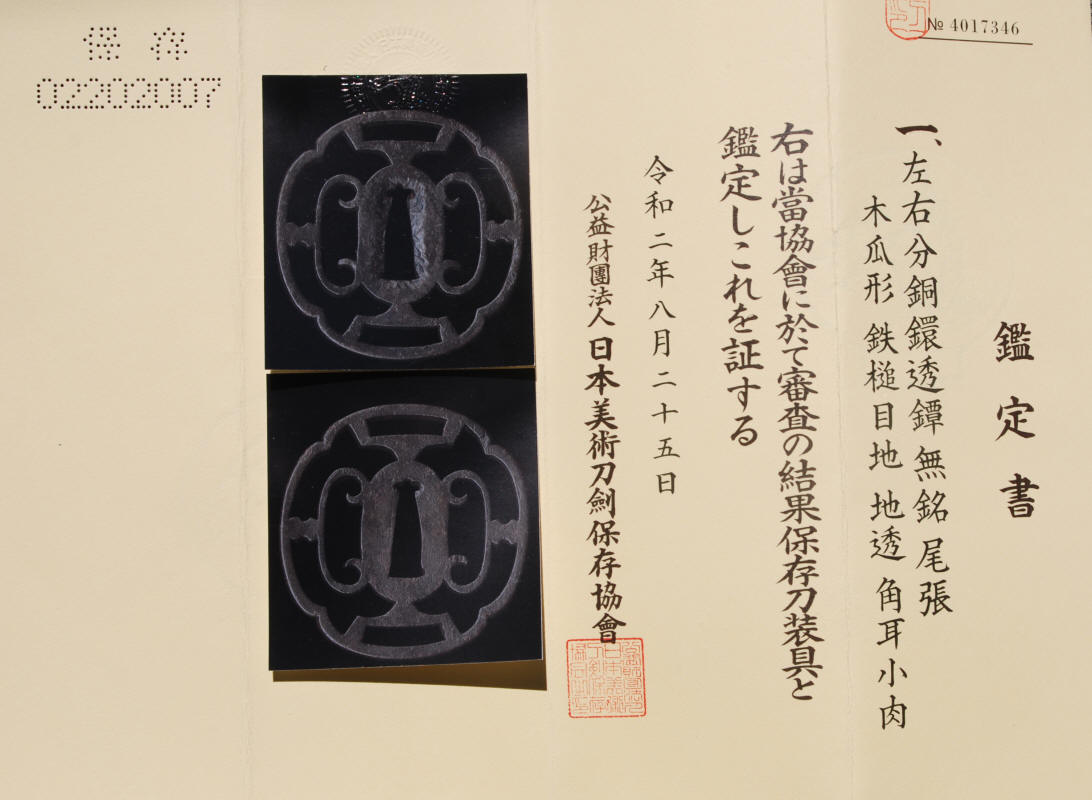 № 4017346
鑑定書
一、左右分銅鐶透鐔 無銘 尾張
木瓜形 鉄槌目地 地透 角耳小肉
右は當協會に於て審査の結果保存刀装具と
鑑定しこれを証する
令和二年八月二十五日
公益財團法人 日本美術刀劍保存協會
保存
02202007